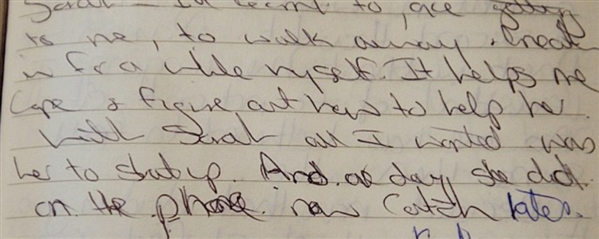 Sarah - I'd learnt to, ace
to me, to walk away. Break
in for a while myself. It helps me
cope & figure out how to help her.
With Sarah all I wanted was
her to shut up. And one day she did.
on the phone. now Catch later.